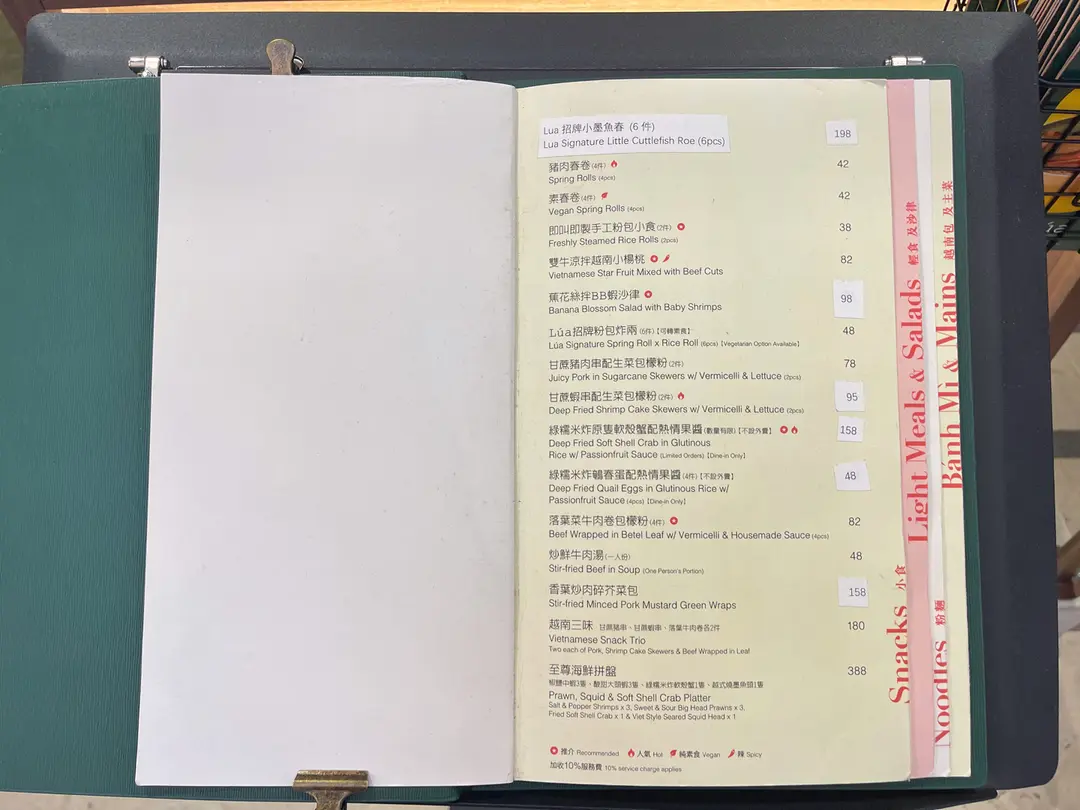 Lua 招牌小墨魚春 (6 件) 198
Lua Signature Little Cuttlefish Roe (6pcs)
豬肉春卷(4件) 42
Spring Rolls (4pcs)
素春卷(4件) 42
Vegan Spring Rolls (4pcs)
即叫即製手工粉包小食(2件) 38
Freshly Steamed Rice Rolls (2pcs)
雙牛涼拌越南小楊桃 82
Vietnamese Star Fruit Mixed with Beef Cuts
蕉花絲拌BB蝦沙律 98
Banana Blossom Salad with Baby Shrimps
Lúa招牌粉包炸兩(6件)【可轉素食】 48
Lúa Signature Spring Roll x Rice Roll (6pcs)【Vegetarian Option Available】
甘蔗豬肉串配生菜包檬粉(2件) 78
Juicy Pork in Sugarcane Skewers w/ Vermicelli & Lettuce (2pcs)
甘蔗蝦串配生菜包檬粉(2件) 95
Deep Fried Shrimp Cake Skewers w/ Vermicelli & Lettuce (2pcs)
綠糯米炸原隻軟殼蟹配熱情果醬(數量有限)【不設外賣】 158
Deep Fried Soft Shell Crab in Glutinous
Rice w/ Passionfruit Sauce (Limited Orders)【Dine-in Only】
綠糯米炸鵪春蛋配熱情果醬(4件)【不設外賣】 48
Deep Fried Quail Eggs in Glutinous Rice w/
Passionfruit Sauce (4pcs)【Dine-in Only】
落葉菜牛肉卷包檬粉(4件) 82
Beef Wrapped in Betel Leaf w/ Vermicelli & Housemade Sauce (4pcs)
炒鮮牛肉湯(一人份) 48
Stir-fried Beef in Soup (One Person's Portion)
香葉炒肉碎芥菜包 158
Stir-fried Minced Pork Mustard Green Wraps
越南三味 甘蔗豬串、甘蔗蝦串、落葉牛肉卷各2件 180
Vietnamese Snack Trio
Two each of Pork, Shrimp Cake Skewers & Beef Wrapped in Leaf
至尊海鮮拼盤 388
椒鹽中蝦3隻、酸甜大頭蝦3隻、綠糯米炸軟殼蟹1隻、越式燒墨魚頭1隻
Prawn, Squid & Soft Shell Crab Platter
Salt & Pepper Shrimps x 3, Sweet & Sour Big Head Prawns x 3,
Fried Soft Shell Crab x 1 & Viet Style Seared Squid Head x 1
推介 Recommended 人氣 Hot 純素食 Vegan 辣 Spicy
加收10%服務費 10% service charge applies
Snacks 小食
Light Meals & Salads 輕食 及沙律
Noodles 粉麵
Bánh Mì & Mains 越南包 及主菜